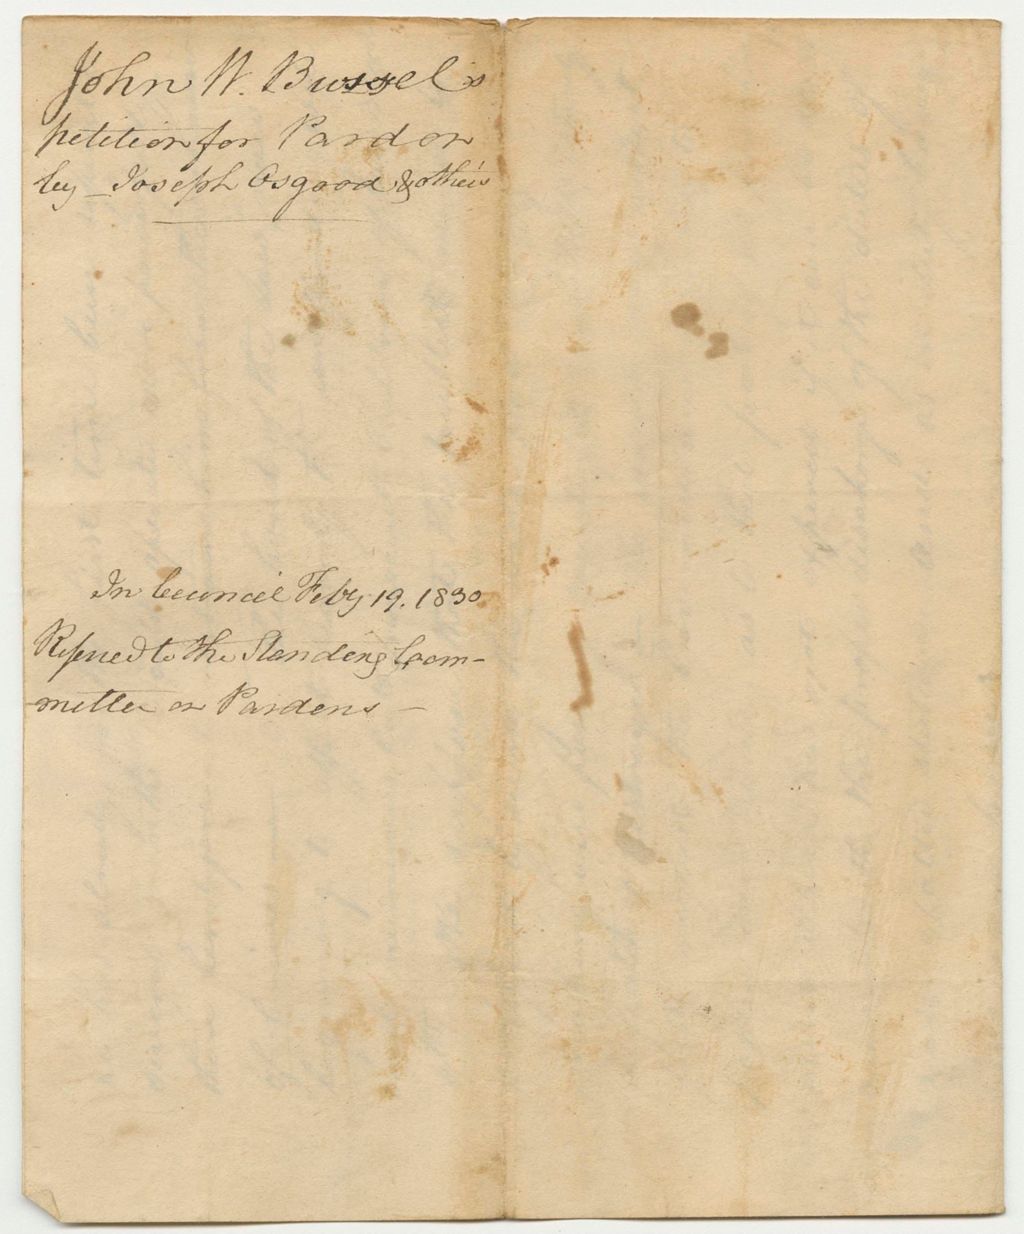 John W. Bussel's
petition for Pardon
by Joseph Osgood & others
In Council Feby 19. 1830
Referred to the Standing Com-
mittee on Pardons —